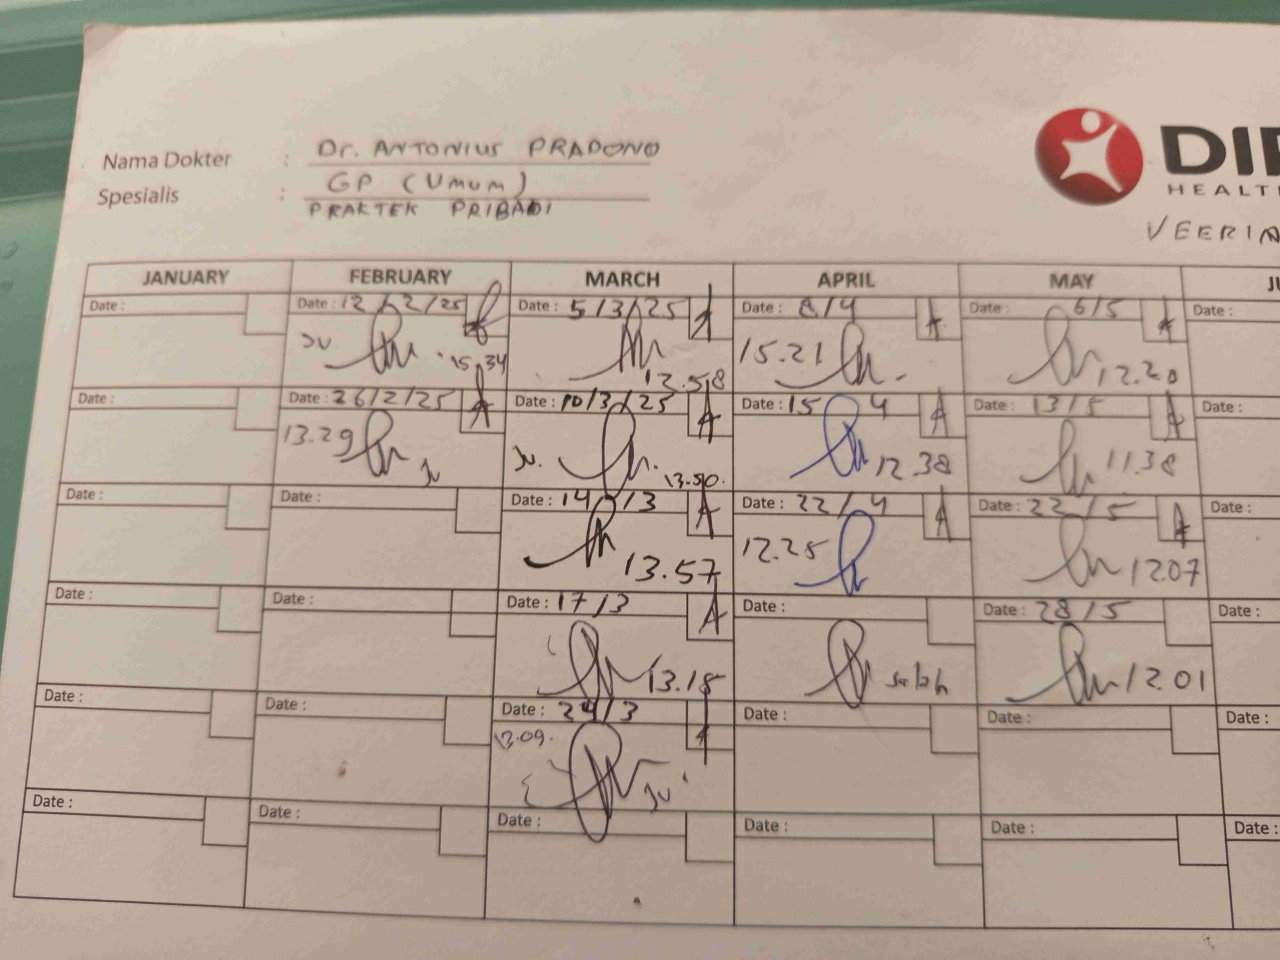 Nama Dokter : Dr. ANTONIUS PRADONO
Spesialis : GP (Umum)
PRAKTEK PRIBADI
HEALTH
JANUARY FEBRUARY MARCH APRIL MAY
Date : Date : 12/2/25 Date : 5/3/25 Date : 8/4 Date : 6/5 Date :
15.34 12.58 15.21 12.20
Date : Date : 26/2/25 Date : 10/3/25 Date : 15/4 Date : 13/5 Date :
13.29 13.50 12.38 11.38
Date : Date : Date : 14/3 Date : 22/4 Date : 22/5 Date :
13.57 12.25 12.07
Date : Date : Date : 17/3 Date : Date : 28/5 Date :
13.18 salah 12.01
Date : Date : Date : 24/3 Date : Date : Date :
13.09.
Date : Date : Date : Date : Date : Date :